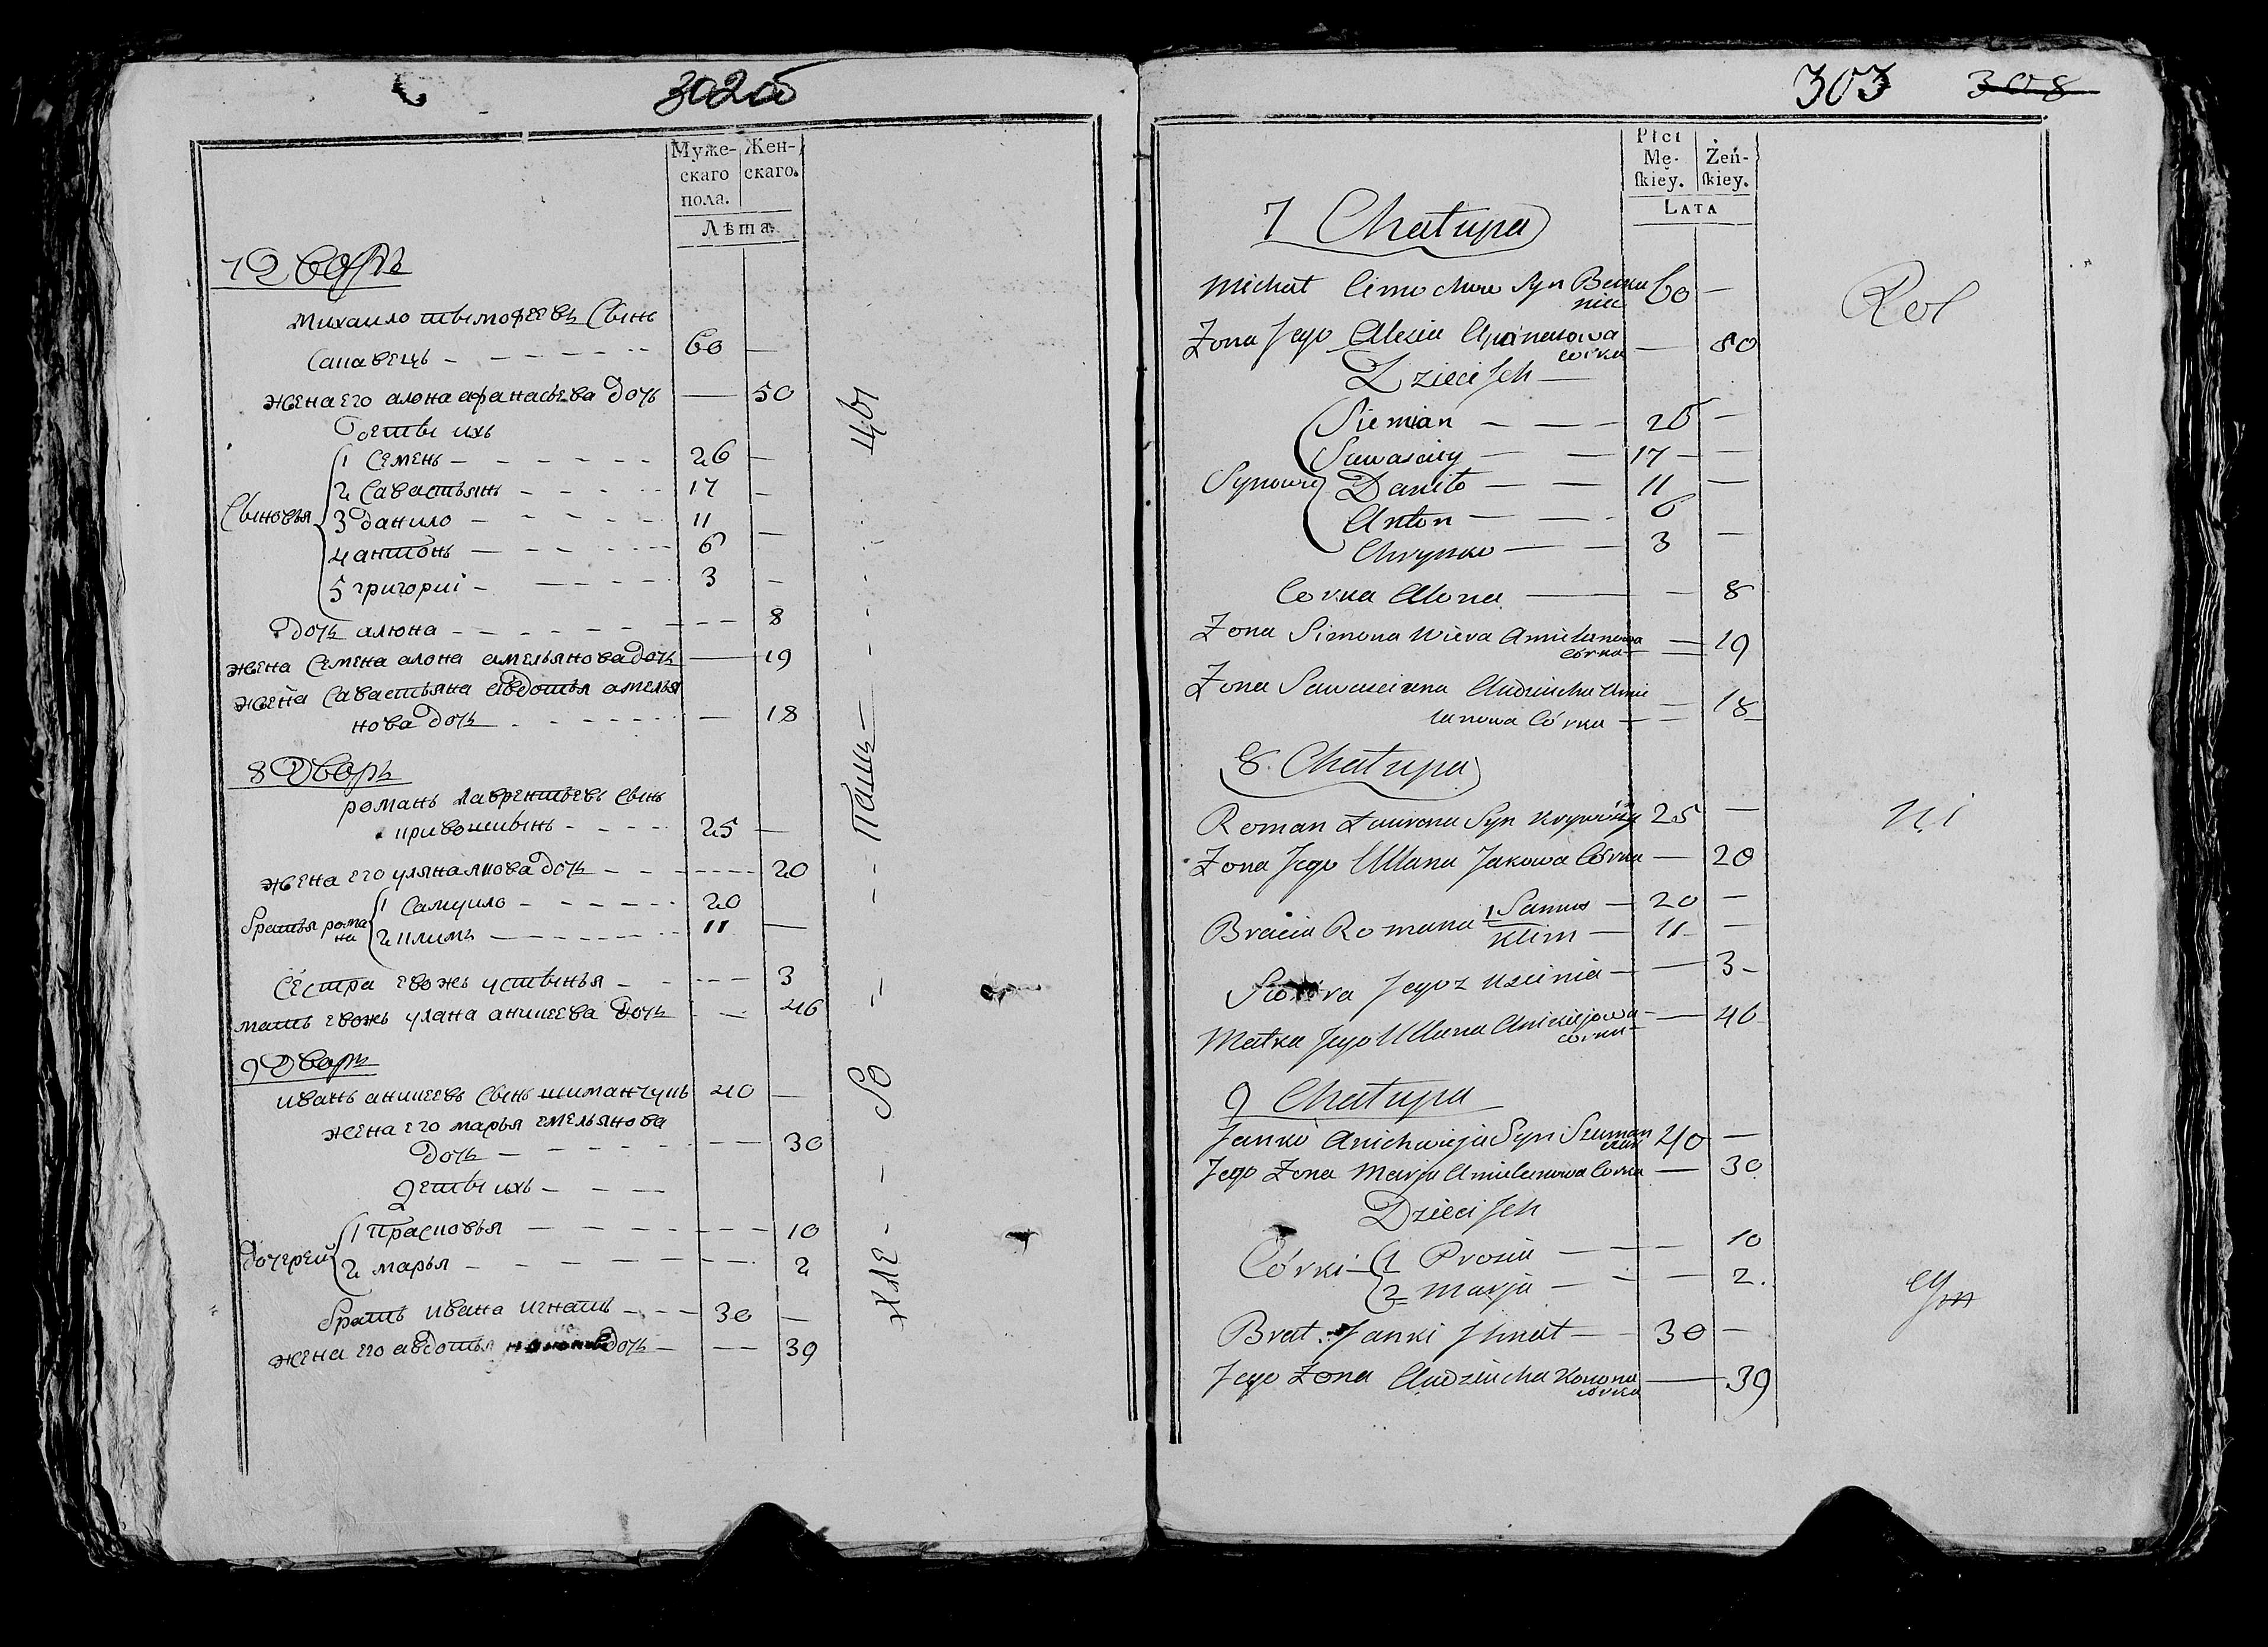 302об
Муже-
скаго
пола.
Жен-
скаго.
Лѣта.
7 Дворъ
Михаило тимофеевъ Сынъ
60 —
жена его алона афанасьева дочь — 50
дети ихъ
Сыновья
1 Семенъ — 26 —
2 Савастьянъ — 17 —
3 данило — 11 —
4 антонъ — 6 —
5 григориі — 3 —
дочь алюна — 8
жена Семена алона амельянова дочь — 19
жена Савастьяна авдотья амелья
нова дочь — 18
8 Дворъ
романъ лаврентьевъ Сынъ
25 —
жена его уляна дочь — 20
братья рома
на
1 Самуило — 20
2 климъ — 11 —
Сестра евожъ устинья — 3
мать евожъ улана аникеева дочь — 46
9 Дворъ
иванъ аникеевъ Сынъ шиманчукъ 40 —
жена его марья емельянова
дочь — 30
дети ихъ
дочерей
1 Прасковья — 10
2 марья — 2
братъ ивана игнатъ — 30 —
жена его авдотья дочь — 39
303 308
Płci
Mę-
skiey.
Żeń-
skiey.
LATA
7 Chałupa
Michał Cimochwa Syn 60 —
Żona Jego Alesia Apanasowa
córka — 80
Dzieci Ich —
Synowie
Siemian — 26 —
Sawasciey — 17 —
Daniło — 11 —
Anton — 6
Chrypko — 3 —
Corka Alona — 8
Żona Simona Amielanowa
córka — 19
Żona Sawasciana Audziucha Amie
lanowa Córka — 18
8. Chałupa
Roman Ławrona Syn 25 —
Żona Jego Ullana Jakowa Córka — 20
Bracia Romana 1 Samus — 20 —
Klim — 11 —
Siostra Jegoz — 3
Matka Jego Ullana Anickiejowa
corka — 46
9 Chałupa
Janko Anichwieja Syn Szyman
czuk 40 —
Jego Żona Marja Amielanowa Corka — 30
Dzieci Ich
Córki
1 Prosia — 10
2 Marja — 2.
Brat Janki Ihnat — 30 —
Jego Żona Audziucha Konona
córka — 39